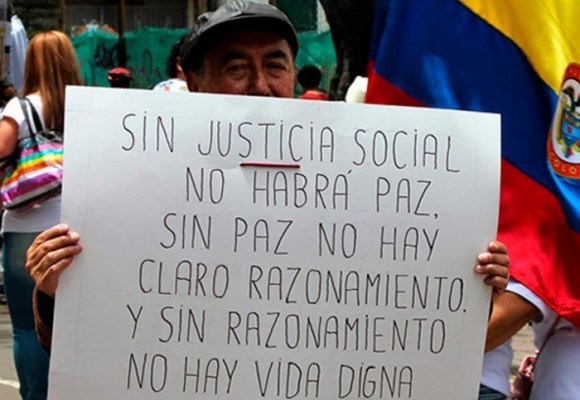 SIN JUSTICIA SOCIAL
NO HABRÁ PAZ,
SIN PAZ NO HAY
CLARO RAZONAMIENTO.
Y SIN RAZONAMIENTO
NO HAY VIDA DIGNA